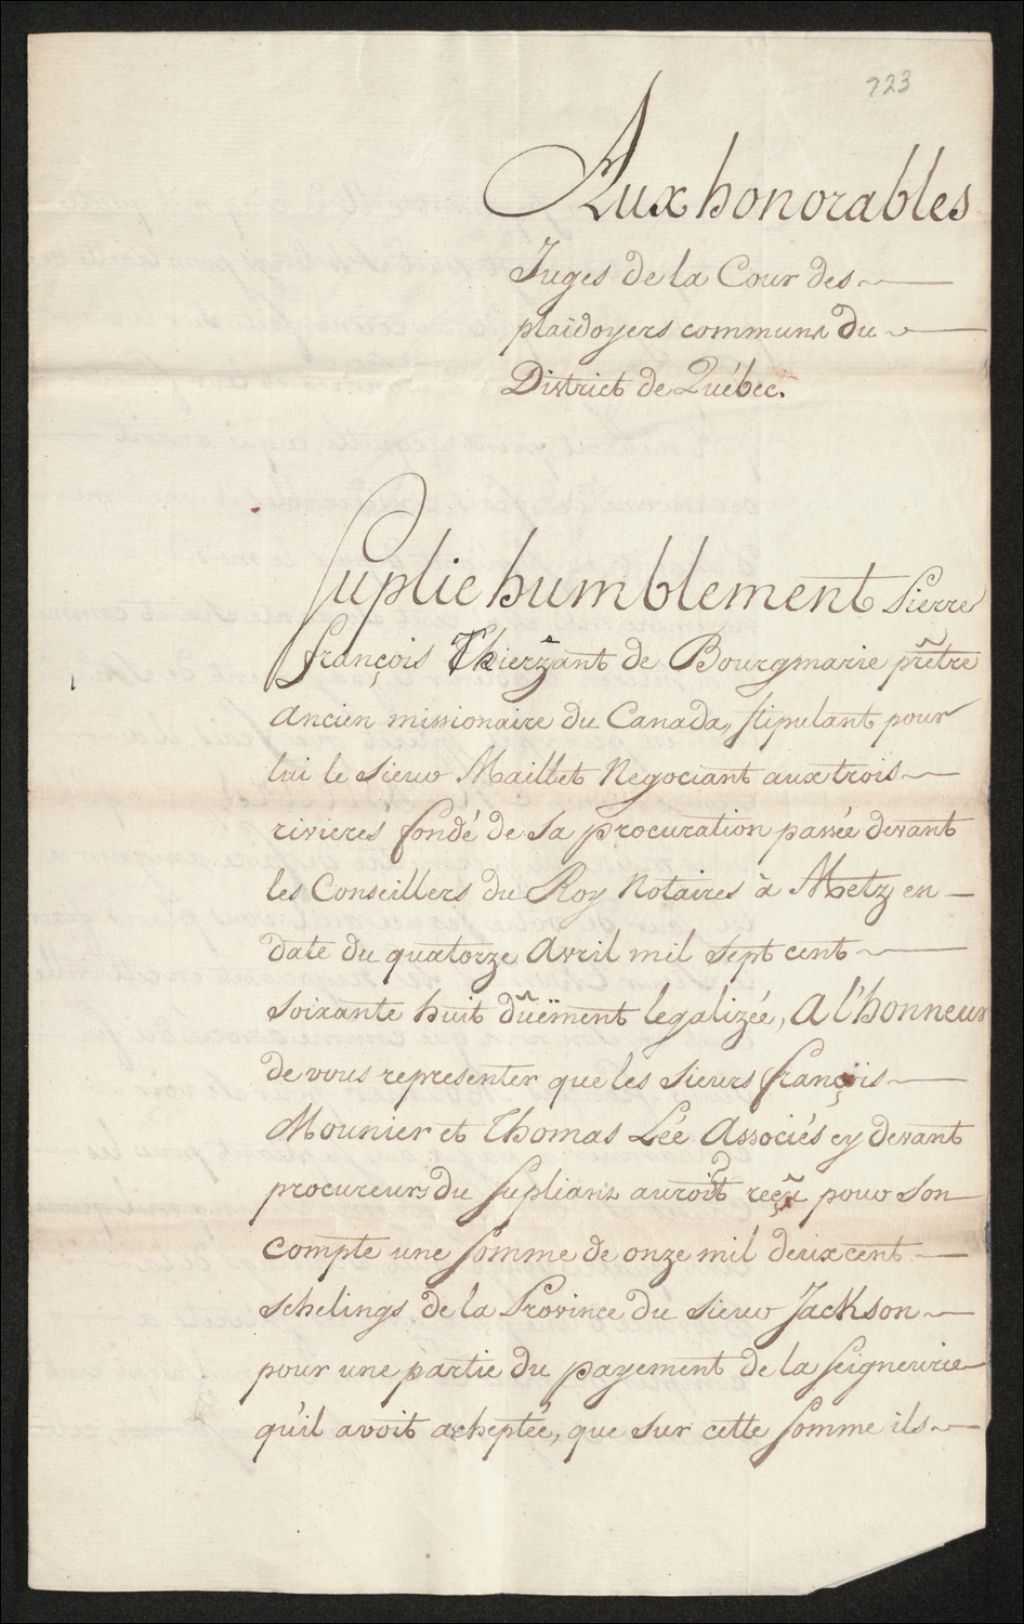 723
Aux honorables
Juges de la Cour des
plaidoyers communs du
District de Québec.
Suplie humblement Pierre
françois Thierzant de Bourgmarie prêtre
ancien missionaire du Canada, stipulant pour
lui le Sieur Maillet Negociant aux trois
rivieres fondé de sa procuration passée devant
les Conseillers du Roy Notaires à Metz en
date du quatorze Avril mil sept cent
soixante huit dûëment legalizée, A l'honneur
de vous representer que les Sieurs françois
Mounier et Thomas Lée Associés cy devant
procureurs du Supliant auroit reçû pour son
compte une somme de onze mil deux cent
schelings de la Province du Sieur Jackson
pour une partie du payement de la Seigneurie
qu'il avoit acheptée, que sur cette somme ils